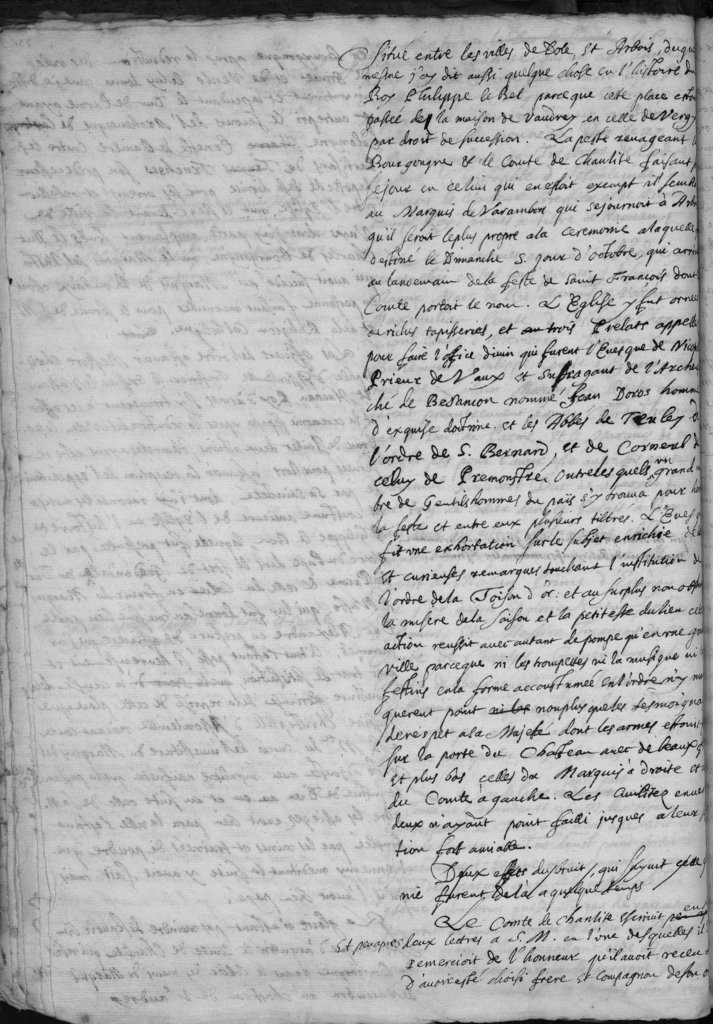 Situé entre les villes de Dole, et Arbois, duq
mesme j'ay dit aussi quelque chose en l'histoire du
Roy Philippe le Bel, parceque cete place estoit
passée de la maison de Vaudrey en celle de Vergy
par droit de succession. La peste ravageant l
Bourgongne & le Comte de Chanlite faisant
sejour en celieu qui en estoit exempt il sembla
au Marquis de Varambon qui sejournoit à Arb
qu'il seroit le plus propre a la ceremonie alaquelle
destiné le Dimanche 5 jour d'octobre, qui arriv
au landemain de la feste de saint François dont
Comte portait le nom. L'Eglise y fut ornée
de riches tapisseries, et trois Prelats appellé
pour faire l'office divin qui furent l'Evesque de Nico
Prieur de Vaux et suffragant de l'Arche
ché de Besançon nommé Jean Doros homme
d'exquise doctrine. et les Abbés de Teuley d
l'ordre de S. Bernard, et de Corneul d
celuy de Premonstré. Outre les quels vn grand
bre de Gentilshommes du païs s'y trouva pour ho
la feste et entre eux plusieurs tiltrés. L'Eves
fit vne exhortation sur le subjet enrichie de
et curieuses remarques touchant l'institution d
l'ordre de la Toison d'or: et au surplus non obst
la misere de la saison et la petitesse du lieu cete
action reussit avec autant de pompe qu'en vne gr
ville parceque ni les trompettes ni la musique ni
festins en la forme accoustumée en l'ordre n'y m
querent point ni les non plus que les tesmoigna
de respet a sa Majesté dont les armes estoient
sur la porte du Chasteau avec de beaux
et plus bas celles du Marquis à droite et
du Comte à gauche. Les civilitez envers
deux n'ayant point failli jusques a leur
tion fort amiable.
Deux effets du bruit, qui suivit cete
nie furent delà a quelque temps
Le Comte de Chanlite escrivit en
et peu apres deux lettres a S. M. en l'une desquelles il
remercioit de l'honneur qu'il avoit receu
d'avoir esté choisi frere et compagnon de son o